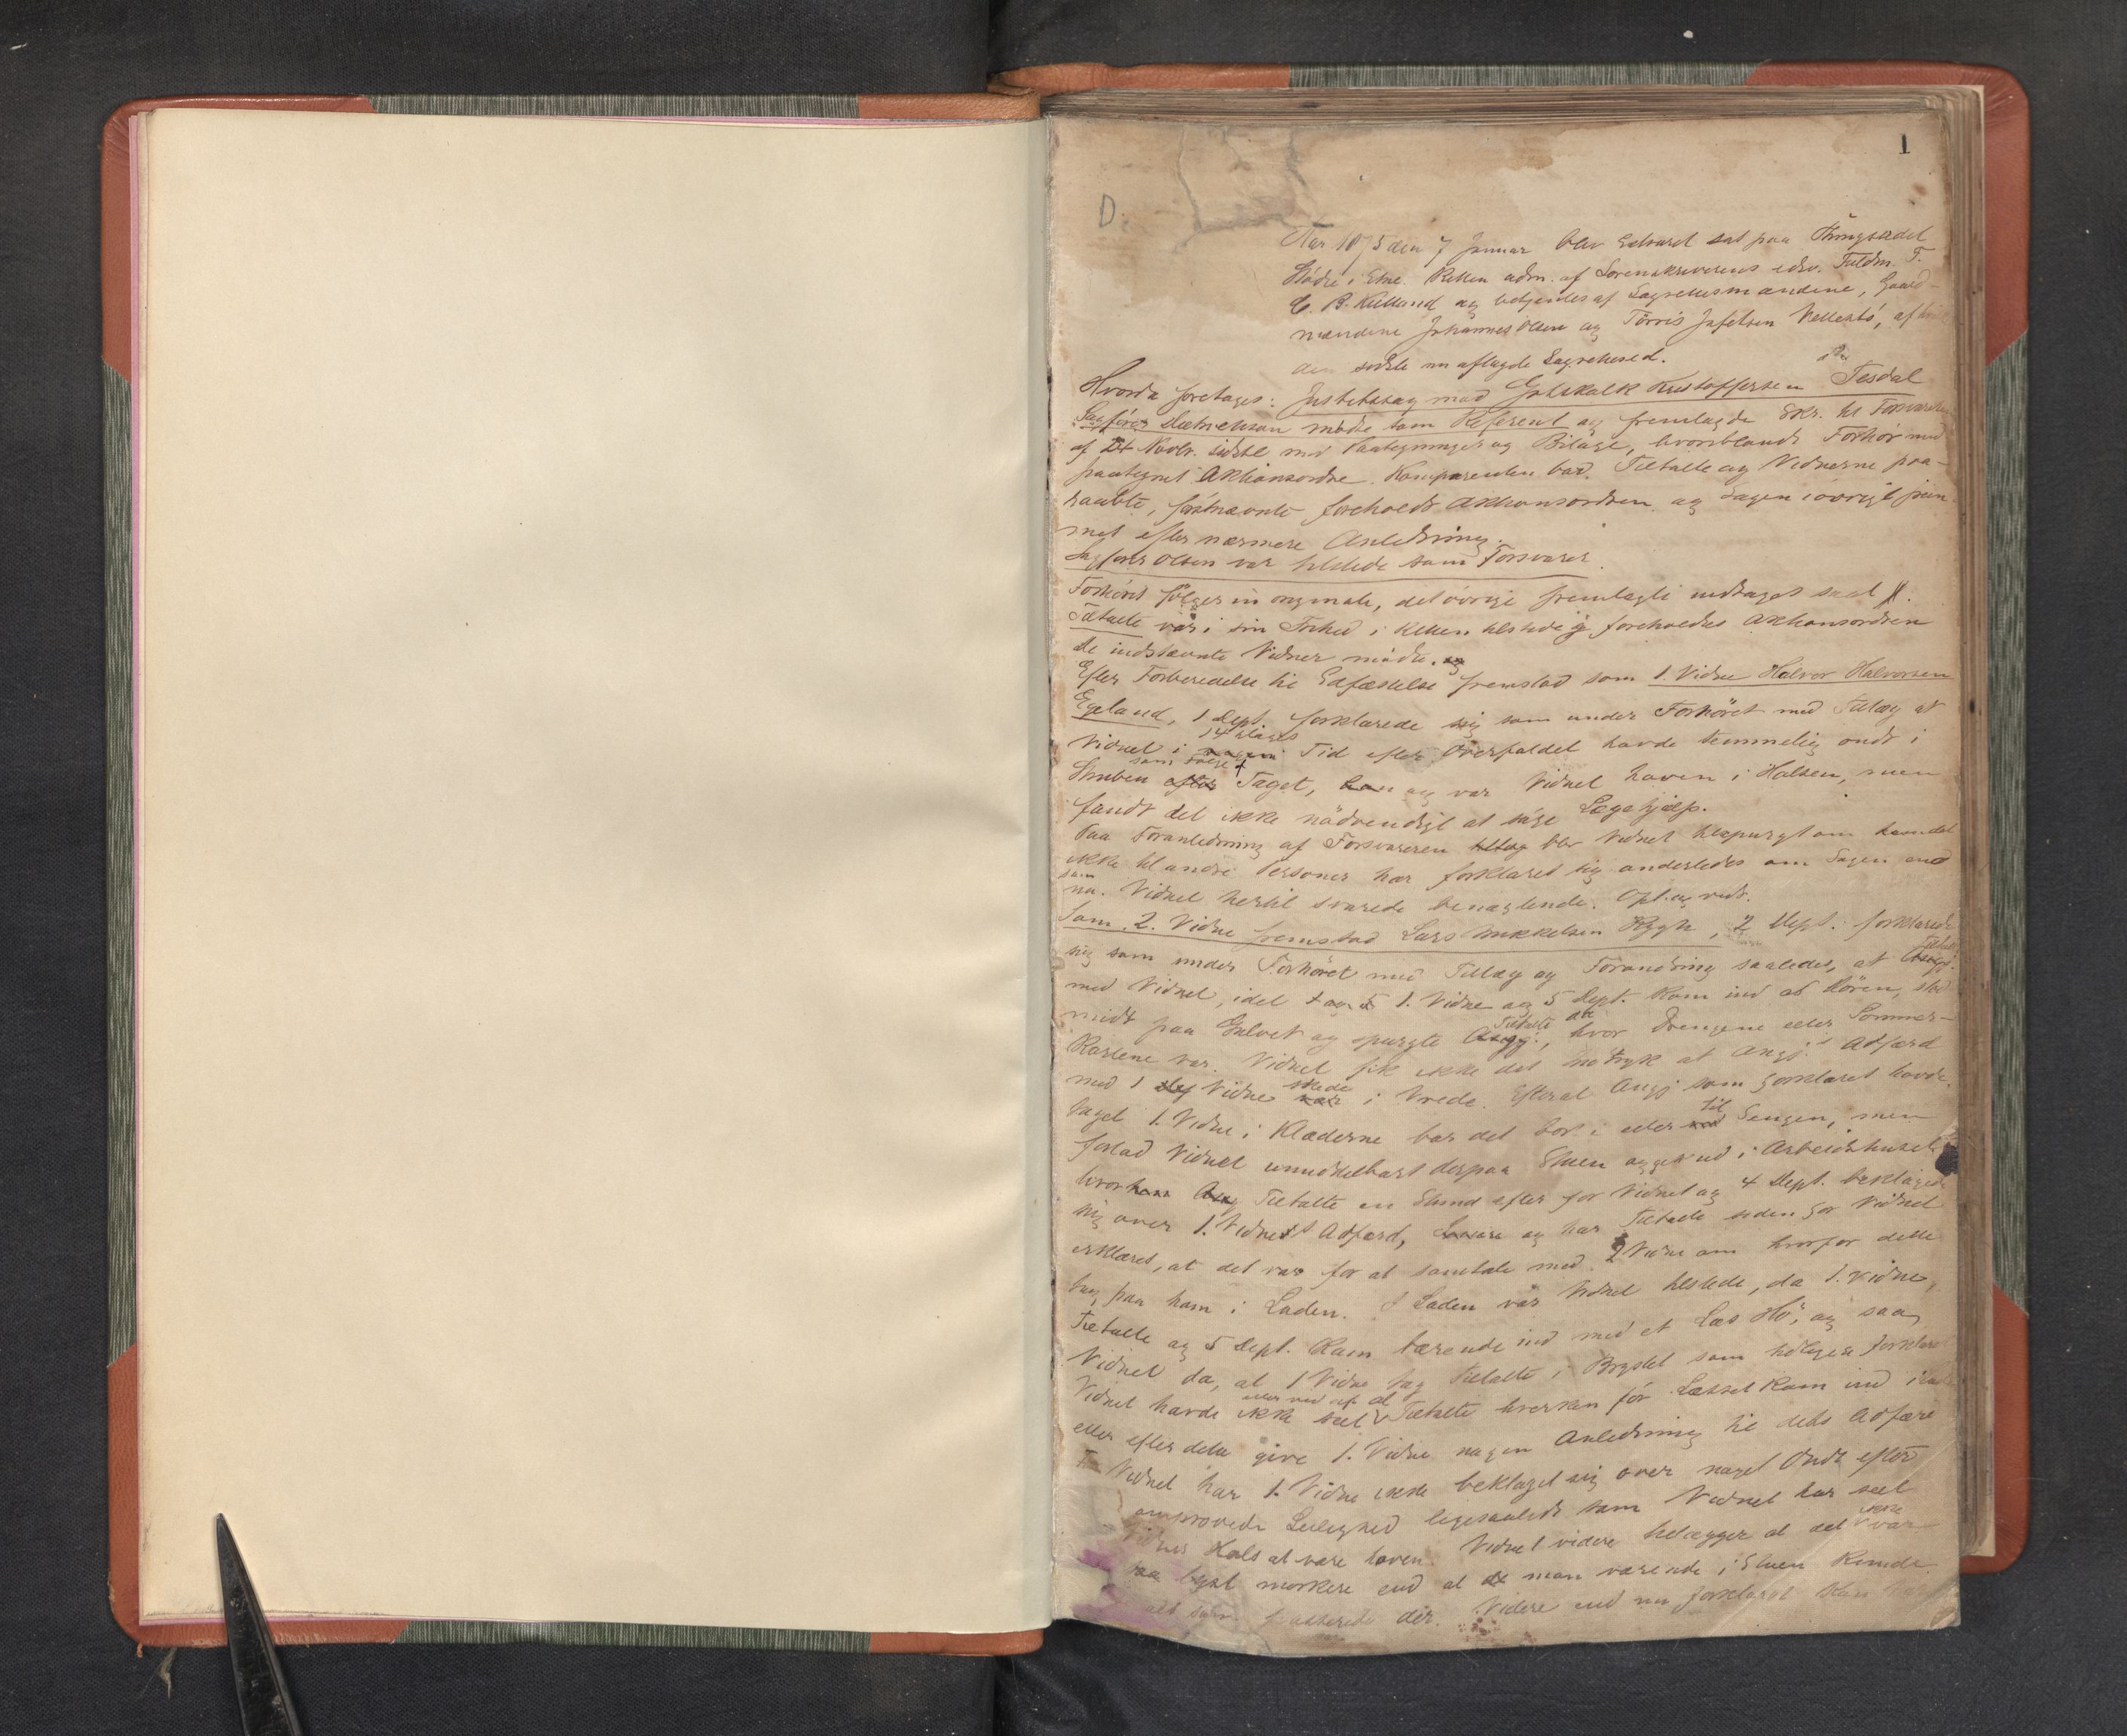 1
D.
Aar 1875 den 7 Januar blev Extraret sat paa Thingstedet
Stødle i Etne. Retten adm. af Sorenskriverens edsv. Fuldm. T.
C. B. Kielland og betjentes af Lagrettesmændene, Gaard-
mændene Johannes Olsen og Tørris Jafetsen Vellestø, af hvil
den sidste nu aflagde Lagretteseed.
Hvorda foretoges: Justitssag mod Gotskalk Kristoffersen Tesdal
Sagfører mødte som Referent og fremlagde Skr. til Forsvareren
af 24 Novbr. sidstl. med Paategninger og Bilage, hvoriblandt Forhør med
paategnet Aktionsordre. Komparenten bad Tiltalte og Vidnerne paa-
raabte, førstnævnte foreholdt Aktionsordren og Sagen iøvrigt frem-
met efter nærmere Anledning.
Sagfører Olsen var tilstede som Forsvarer.
Forhøret følger in originale, det øvrige fremlagte indtages saal.
Tiltalte var i sin Frihed i Retten tilstede foreholdtes Aktionsordren
de indstævnte Vidner mødte. og
Efter Forberedelse til Edfæstelse fremstod som 1. Vidne Halvor Halvorsen
Egeland, 1 Dept. forklarede sig som under Forhøret med Tillæg at
14 Dages
Vidnet i Tid efter Overfaldet havde temmelig ondt i
som Følge
Struben efter Taget, og var Vidnet hoven i Halsen, men
fandt det ikke nødvendigt at søge Lægehjælp.
Paa Foranledning af Forsvareren blev Vidnet tilspurgt om han det
ikke til andre Personer har forklaret sig anderledes om Sagen end
som
nu. Vidnet hertil svarede benægtende. Opl. og vedt.
Som 2. Vidne fremstod Lars Mikkelsen Rygh, 2 Dept. forklarede
Tiltalte
sig som under Forhøret med Tillæg og Forandring saaledes, at Angj.
med Vidnet, idet 1. Vidne og 5 Dept. kom ind af Døren, stod
Tiltalte
midt paa Gulvet og spurgte Angj., hvor Drengene eller Sommer-
Karlene var. Vidnet fik ikke det Indtryk at Angj.s Adfærd
skede
med 1 Vidne var i Vrede. Efterat Angj som forklaret havde
til
taget 1. Vidne i Klæderne bar det bort i eller ved Sengen, men
forlod Vidnet umiddelbart derpaa Stuen og gik ud i Arbeidshuset
hvor Tiltalte en Stund efter for Vidnet og 4 Dept. beklagede
sig over 1. Vidnets Adfærd, og har Tiltalte siden for Vidnet
erklæret, at det var for at samtale med Vidne om hvorfor dette
tog paa ham i Laden. I Laden var Vidnet tilstede, da 1. Vidne,
Tiltalte og 5 Dept. kom bærende ind med et Læs Hø, og saa
Vidnet da, at 1 Vidne tog Tiltalte i Brystet som tidligere forklaret
eller ved af at
Vidnet havde ikke seet Tiltalte hverken før Læsset kom ind i Laden
eller efter dette give 1. Vidne nogen Anledning til dets Adfærd
Vidnet har 1. Vidne ikke beklaget sig over noget Ondt efter
omprovede Leilighed ligesaalidt som Vidnet har seet
ikke
Vidnes Hals at være hoven. Vidnet videre tillægger at det var
saa lyst mørkere end at man værende i Stuen kunde
alt som passerede der. Videre end nu forklaret kan